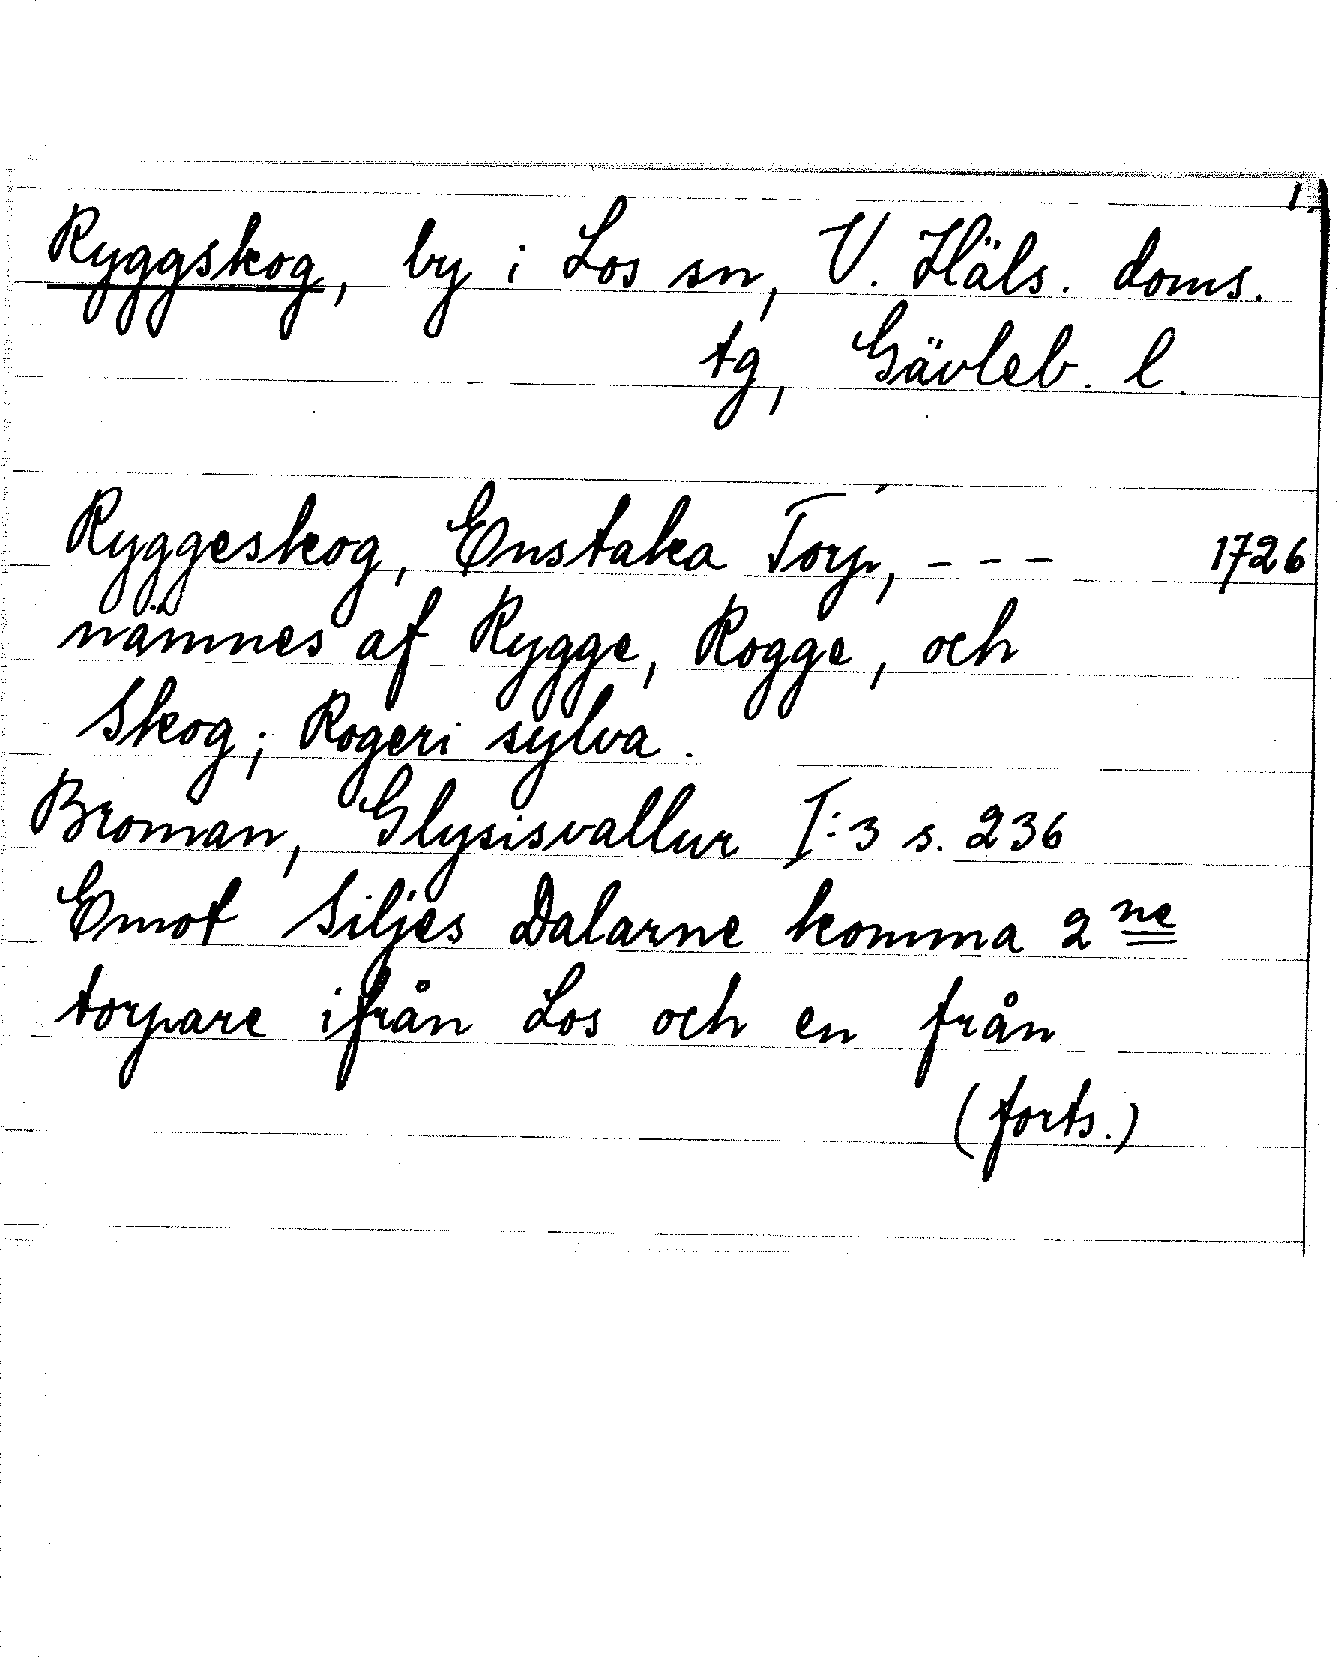 1.
Ryggskog, by i Los sn, V. Häls. doms.
tg, Gävleb. l.
Ryggeskog, Enstaka Torp, - - - 1726
nämnes af Rygge, Rogge, och
Skog; Rogeri sylva.
Broman, Glysisvallur I:3 s. 236
Emot Siljes Dalarne komma 2ne
torpare ifrån Los och en från
(forts.)